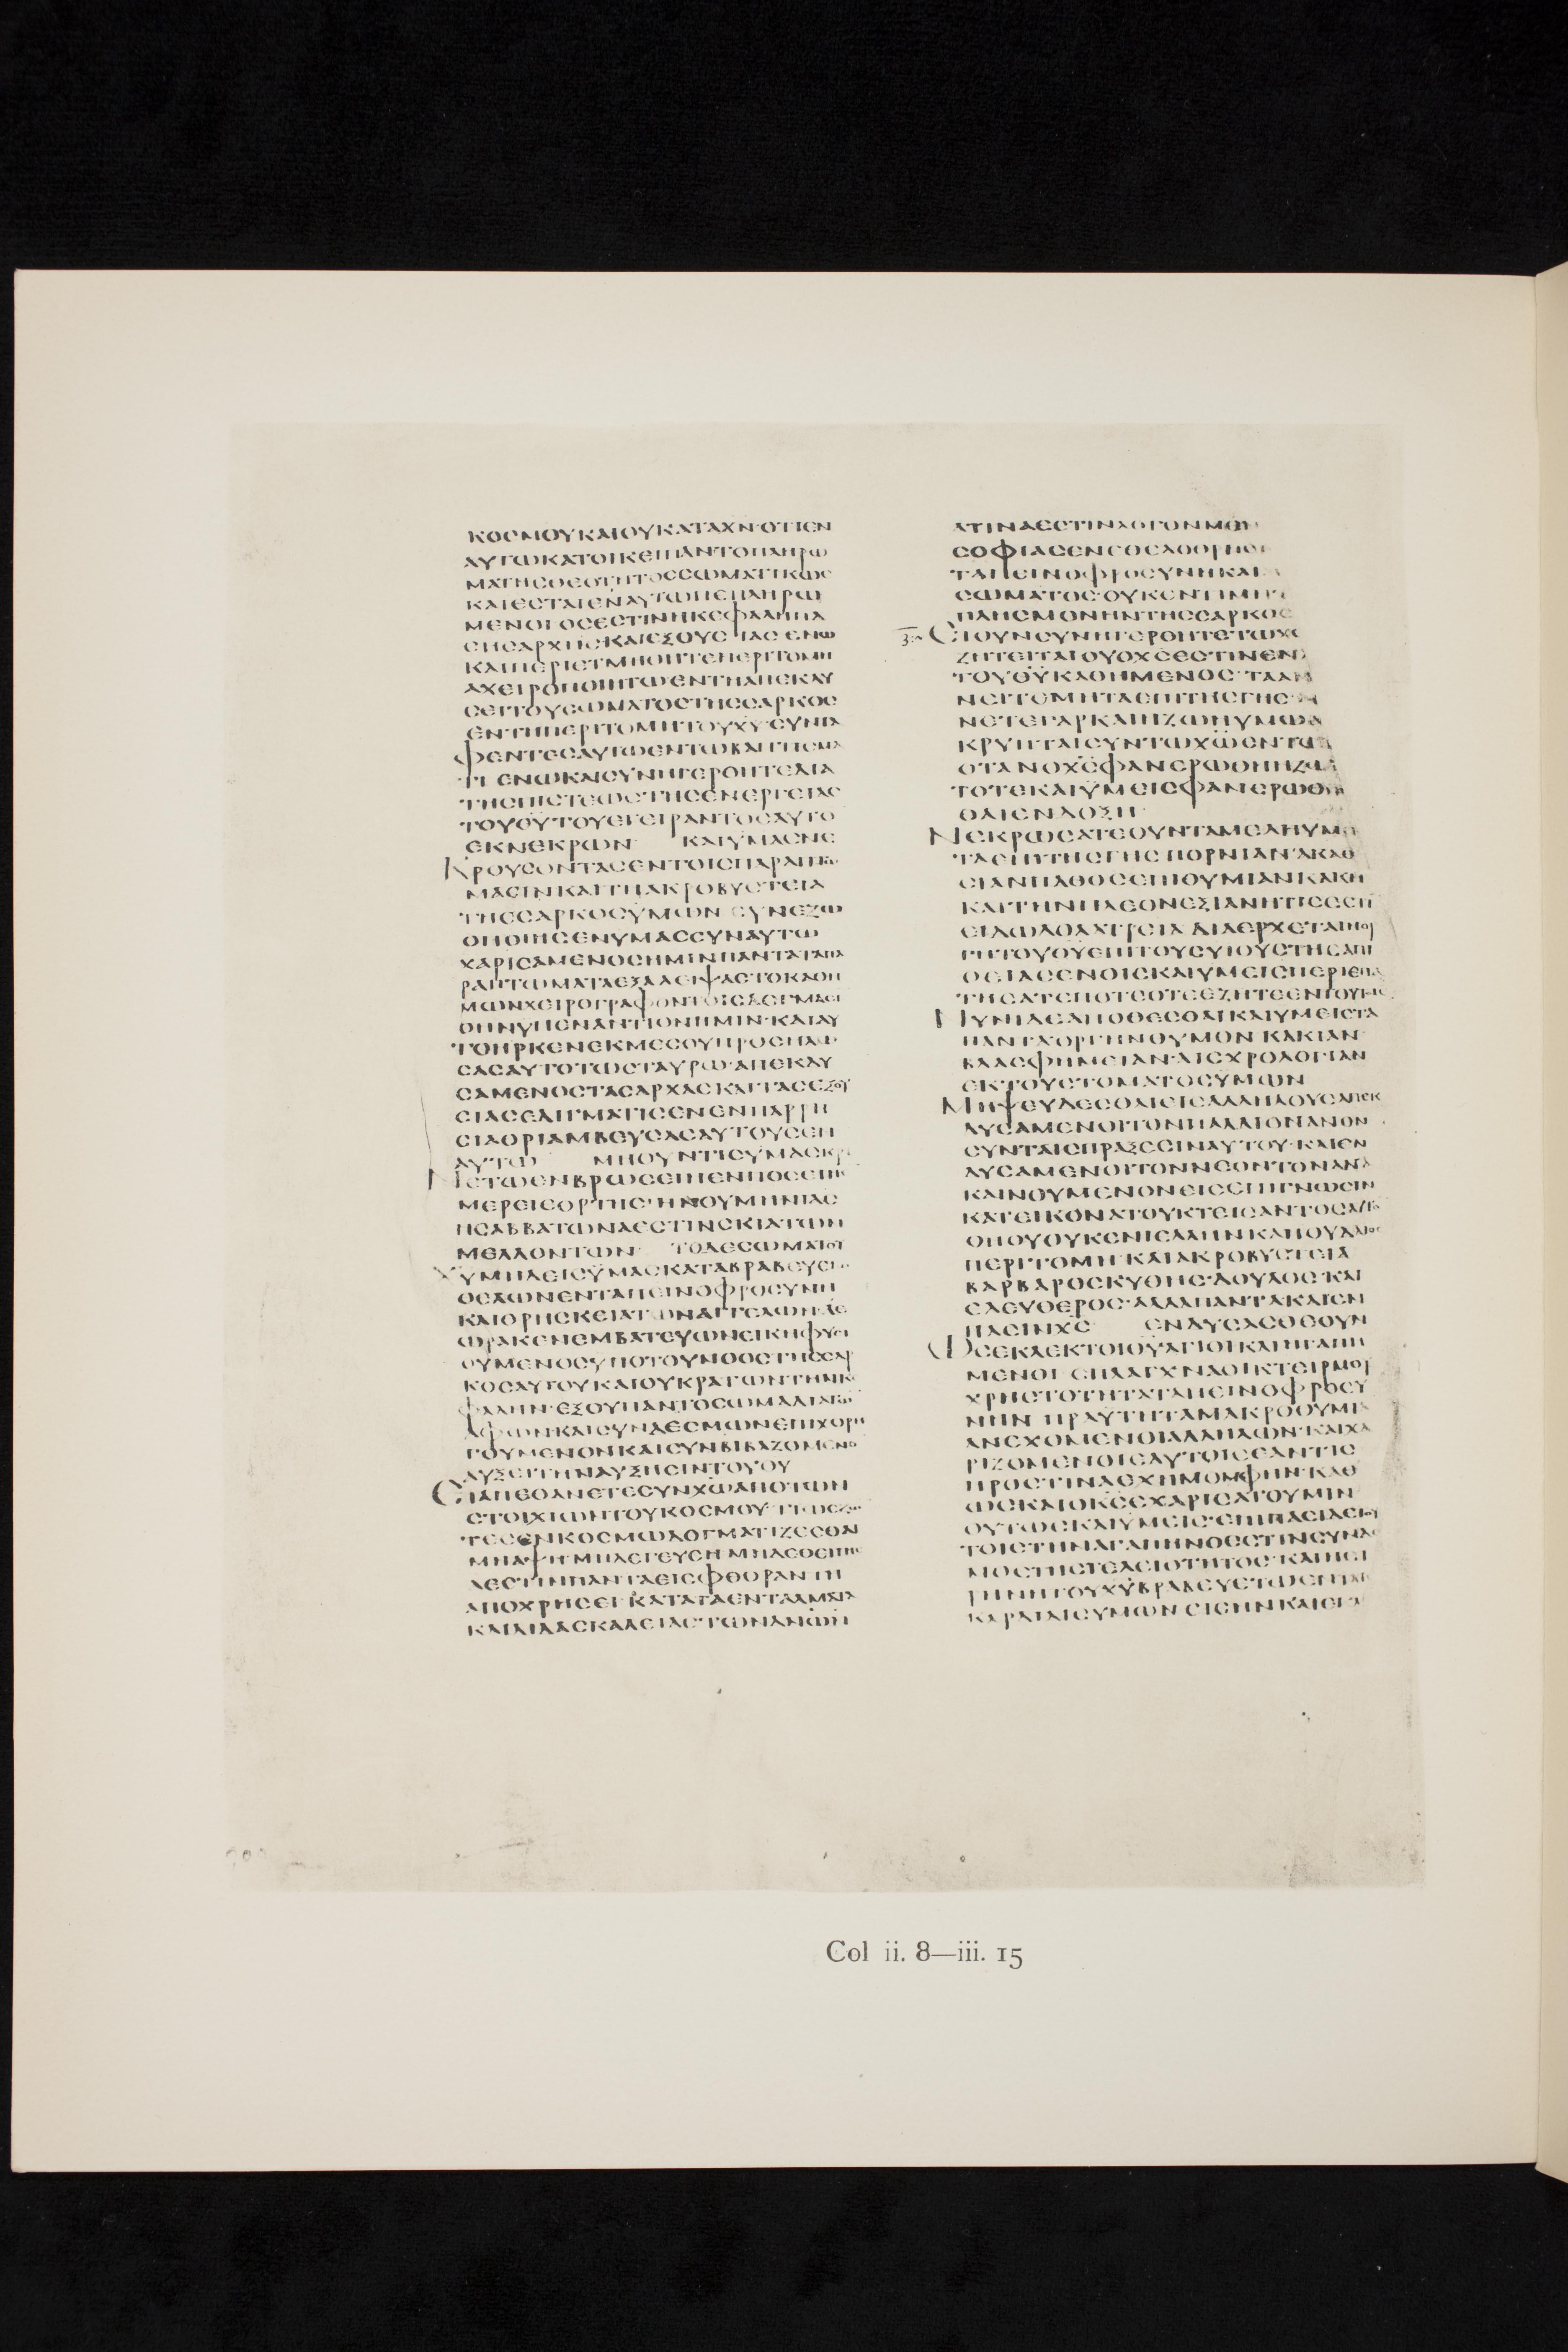 ΚΟϹΜΟΥΚΑΙΟΥΚΑΤΑΧΝ·ΟΤΙΕΝ
ΑΥΤΩΚΑΤΟΙΚΕΙΠΑΝΤΟΠΛΗΡΩ
ΜΑΤΗϹΘΕΟΤΗΤΟϹϹΩΜΑΤΙΚΩϹ
ΚΑΙΕϹΤΑΙΕΝΑΥΤΩΠΕΠΛΗΡΩ
ΜΕΝΟΙΟϹΕϹΤΙΝΗΚΕΦΑΛΗΠΑ
ϹΗϹΑΡΧΗϹΚΑΙΕΞΟΥϹΙΑϹ ΕΝΩ
ΚΑΙΠΕΡΙΕΤΜΗΘΗΤΕΠΕΡΙΤΟΜΗ
ΑΧΕΙΡΟΠΟΙΗΤΩΕΝΤΗΑΠΕΚΔΥ
ϹΕΙΤΟΥϹΩΜΑΤΟϹΤΗϹϹΑΡΚΟϹ
ΕΝΤΗΠΕΡΙΤΟΜΗΤΟΥΧΥ·ϹΥΝΤΑ
ΦΕΝΤΕϹΑΥΤΩΕΝΤΩΒΑΠΤΙϹΜΑ
ΤΙ ΕΝΩΚΑΙϹΥΝΗΓΕΡΘΗΤΕΔΙΑ
ΤΗϹΠΙϹΤΕΩϹΤΗϹΕΝΕΡΓΕΙΑϹ
ΤΟΥΘΥΤΟΥΕΓΕΙΡΑΝΤΟϹΑΥΤΟ
ΕΚΝΕΚΡΩΝ ΚΑΙΫΜΑϹΝΕ
ΚΡΟΥϹΟΝΤΑϹΕΝΤΟΙϹΠΑΡΑΠΤΩ
ΜΑϹΙΝΚΑΙΤΗΑΚΡΟΒΥϹΤΕΙΑ
ΤΗϹϹΑΡΚΟϹΫΜΩΝ ϹΥΝΕΖΩ
ΟΠΟΙΗϹΕΝΥΜΑϹϹΥΝΑΥΤΩ
ΧΑΡΙϹΑΜΕΝΟϹΗΜΙΝΠΑΝΤΑΤΑΠΑ
ΡΑΠΤΩΜΑΤΑΕΞΑΛΕΙΨΑϹΤΟΚΑΘΗ
ΜΩΝΧΕΙΡΟΓΡΑΦΟΝΤΟΙϹΔΟΓΜΑϹΙ
ΟΗΝΥΠΕΝΑΝΤΙΟΝΗΜΙΝ·ΚΑΙΑΥ
ΤΟΗΡΚΕΝΕΚΜΕϹΟΥΠΡΟϹΗΛΩ
ϹΑϹΑΥΤΟΤΩϹΤΑΥΡΩ·ΑΠΕΚΔΥ
ϹΑΜΕΝΟϹΤΑϹΑΡΧΑϹΚΑΙΤΑϹΕΞΟΥ
ϹΙΑϹΕΔΙΓΜΑΤΙϹΕΝΕΝΠΑΡΡΗ
ϹΙΑΘΡΙΑΜΒΕΥϹΑϹΑΥΤΟΥϹΕΝ
ΑΥΤΩ ΜΗΟΥΝΤΙϹΥΜΑϹΚΡΙ
ΝΕΤΩΕΝΒΡΩϹΕΙΗΕΝΠΟϹΕΙΗΕ
ΜΕΡΕΙΕΟΡΤΗϹ·ΗΝΟΥΜΗΝΙΑϹ
ΗϹΑΒΒΑΤΩΝΑΕϹΤΙΝϹΚΙΑΤΩΝ
ΜΕΛΛΟΝΤΩΝ ΤΟΔΕϹΩΜΑΤΟΥ
ΧΥΜΗΔΕΙϹΫΜΑϹΚΑΤΑΒΡΑΒΕΥΕΤΩ
ΘΕΛΩΝΕΝΤΑΠΕΙΝΟΦΡΟϹΥΝΗ
ΚΑΙΘΡΗϹΚΕΙΑΤΩΝΑΓΓΕΛΩΝ·ΑΕ
ΩΡΑΚΕΝΕΜΒΑΤΕΥΩΝΕΙΚΗΦΥϹΙ
ΟΥΜΕΝΟϹΥΠΟΤΟΥΝΟΟϹΤΗϹϹΑΡ
ΚΟϹΑΥΤΟΥΚΑΙΟΥΚΡΑΤΩΝΤΗΝΚΕ
ΦΑΛΗΝ·ΕΞΟΥΠΑΝΤΟϹΩΜΑΔΙΑΤΩ
ΑΦΩΝΚΑΙϹΥΝΔΕϹΜΩΝΕΠΙΧΟΡΗ
ΓΟΥΜΕΝΟΝΚΑΙϹΥΝΒΙΒΑΖΟΜΕΝΟ
ΑΥΞΕΙΤΗΝΑΥΞΗϹΙΝΤΟΥΘΥ
ΕΙΑΠΕΘΑΝΕΤΕϹΥΝΧΩΑΠΟΤΩΝ
ϹΤΟΙΧΙΩΝΤΟΥΚΟϹΜΟΥ·ΤΙΩϹΖΩ
ΤΕϹΕΝΚΟϹΜΩΔΟΓΜΑΤΙΖΕϹΘΑΙ
ΜΗΑΨΗΜΗΔΕΓΕΥϹΗΜΗΔΕΘΙΓΗϹ
ΑΕϹΤΙΝΠΑΝΤΑΕΙϹΦΘΟΡΑΝΤΗ
ΑΠΟΧΡΗϹΕΙ·ΚΑΤΑΤΑΕΝΤΑΛΜΑΤΑ
ΚΑΙΔΙΔΑϹΚΑΛΕΙΑϹΤΩΝΑΝΩΝ
ΑΤΙΝΑΕϹΤΙΝΛΟΓΟΝΜΕΝ
ϹΟΦΙΑϹΕΝΕΘΕΛΟΘΡΗϹΚΙ
ΤΑΠΕΙΝΟΦΡΟϹΥΝΗΚΑΙΑ
ϹΩΜΑΤΟϹ·ΟΥΚΕΝΤΙΜΗΤ
ΠΛΗϹΜΟΝΗΝΤΗϹϹΑΡΚΟϹ
ΕΙΟΥΝϹΥΝΗΓΕΡΘΗΤΕΤΩΧΩ
ΖΗΤΕΙΤΑΙΟΥΟΧϹΕϹΤΙΝΕΝΔ
ΤΟΥΘΥΚΑΘΗΜΕΝΟϹ·ΤΑΑΝ
ΝΕΙΤΕΜΗΤΑΕΠΙΤΗϹΓΗϹ·Α
ΝΕΤΕΓΑΡΚΑΙΗΖΩΗΥΜΩΝ
ΚΡΥΠΤΑΙϹΥΝΤΩΧΩΕΝΤΩ
ΟΤΑΝΟΧϹΦΑΝΕΡΩΘΗΗΖΩΗ
ΤΟΤΕΚΑΙΫΜΕΙϹΦΑΝΕΡΩΘΗ
ϹΘΑΙΕΝΔΟΞΗ
ΝΕΚΡΩϹΑΤΕΟΥΝΤΑΜΕΛΗΥΜΩ
ΤΑΕΠΙΤΗϹΓΗϹΠΟΡΝΙΑΝ·ΑΚΑΘ
ϹΙΑΝΠΑΘΟϹΕΠΙΘΥΜΙΑΝΚΑΚΗ
ΚΑΙΤΗΝΠΛΕΟΝΕΞΙΑΝΗΤΙϹΕϹΤΙ
ΕΙΔΩΛΟΛΑΤΡΕΙΑ ΔΙΑΕΡΧΕΤΑΙΗΟΡ
ΓΗΤΟΥΘΥΕΠΙΤΟΥϹΥΙΟΥϹΤΗϹΑΠΙ
ΘΕΙΑϹΕΝΟΙϹΚΑΙΥΜΕΙϹΠΕΡΙΕΠΑ
ΤΗϹΑΤΕΠΟΤΕΟΤΕΕΖΗΤΕΕΝΤΟΥΤΟΙϹ
ΝΥΝΙΔΕΑΠΟΘΕϹΘΑΙΚΑΙΥΜΕΙϹΤΑ
ΠΑΝΤΑΟΡΓΗΝΘΥΜΟΝ·ΚΑΚΙΑΝ
ΒΛΑϹΦΗΜΕΙΑΝ·ΑΙϹΧΡΟΛΟΓΙΑΝ
ΕΚΤΟΥϹΤΟΜΑΤΟϹΫΜΩΝ
ΜΗΨΕΥΔΕϹΘΑΙΕΙϹΑΛΛΗΛΟΥϹΑΠΕΚ
ΔΥϹΑΜΕΝΟΙΤΟΝΠΑΛΑΙΟΝΑΝΟΝ
ϹΥΝΤΑΙϹΠΡΑΞΕϹΙΝΑΥΤΟΥ·ΚΑΙΕΝ
ΔΥϹΑΜΕΝΟΙΤΟΝΝΕΟΝΤΟΝΑΝΑ
ΚΑΙΝΟΥΜΕΝΟΝΕΙϹΕΠΙΓΝΩϹΙΝ
ΚΑΤΕΙΚΟΝΑΤΟΥΚΤΕΙϹΑΝΤΟϹΑΥΤΟ
ΟΠΟΥΟΥΚΕΝΙΕΛΛΗΝΚΑΙΙΟΥΔΑΙΟϹ
ΠΕΡΙΤΟΜΗ·ΚΑΙΑΚΡΟΒΥϹΤΕΙΑ
ΒΑΡΒΑΡΟϹΚΥΘΗϹ·ΔΟΥΛΟϹ·ΚΑΙ
ΕΛΕΥΘΕΡΟϹ·ΑΛΛΑΠΑΝΤΑΚΑΙΕΝ
ΠΑϹΙΝΧϹ ΕΝΔΥϹΑϹΘΕΟΥΝ
ΩϹΕΚΛΕΚΤΟΙΘΥΑΓΙΟΙΚΑΙΗΓΑΠΗ
ΜΕΝΟΙ ϹΠΛΑΓΧΝΑΟΙΚΤΕΙΡΜΟΥ
ΧΡΗϹΤΟΤΗΤΑΤΑΠΕΙΝΟΦΡΟϹΥ
ΝΗΝ ΠΡΑΫΤΗΤΑΜΑΚΡΟΘΥΜΙΑ
ΑΝΕΧΟΜΕΝΟΙΑΛΛΗΛΩΝ·ΚΑΙΧΑ
ΡΙΖΟΜΕΝΟΙΕΑΥΤΟΙϹΕΑΝΤΙϹ
ΠΡΟϹΤΙΝΑΕΧΗΜΟΜΦΗΝ·ΚΑΘ
ΩϹΚΑΙΟΚϹΕΧΑΡΙϹΑΤΟΥΜΙΝ
ΟΥΤΩϹΚΑΙΥΜΕΙϹ·ΕΠΙΠΑϹΙΔΕΤΟΥ
ΤΟΙϹΤΗΝΑΓΑΠΗΝΟΕϹΤΙΝϹΥΝΔΕ
ΜΟϹΤΗϹΤΕΛΕΙΟΤΗΤΟϹ·ΚΑΙΗΕΙ
ΡΗΝΗΤΟΥΧΥΒΡΑΒΕΥΕΤΩΕΝΤΑΙ
ΚΑΡΔΙΑΙϹΥΜΩΝ ΕΙϹΗΝΚΑΙΕΚΛ
Col ii. 8—iii. 15